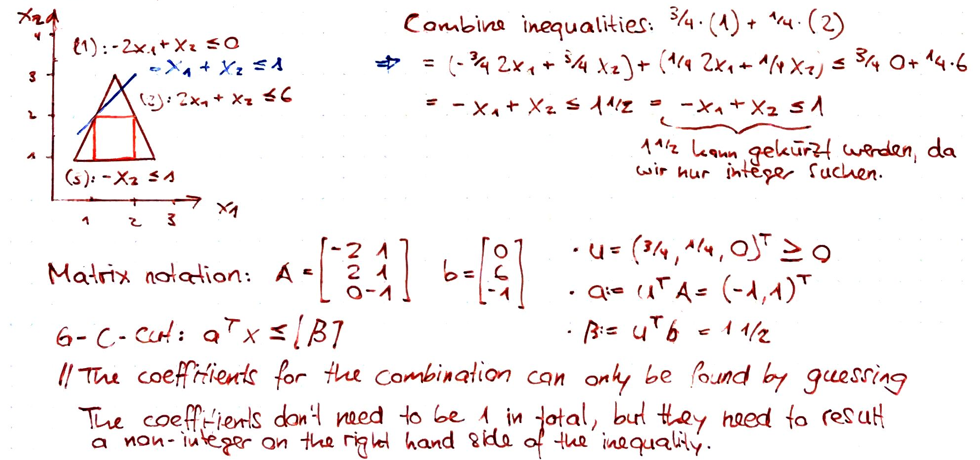 x₂
4
3
2
1
(1): -2x₁ + x₂ ≤ 0
-x₁ + x₂ ≤ 1
(2): 2x₁ + x₂ ≤ 6
(3): -x₂ ≤ 1
1 2 3 x₁
Combine inequalities: 3/4 · (1) + 1/4 · (2)
⇒ = (-3/4 2x₁ + 3/4 x₂) + (1/4 2x₁ + 1/4 x₂) ≤ 3/4 0 + 1/4 · 6
= -x₁ + x₂ ≤ 1 1/2 = -x₁ + x₂ ≤ 1
1 1/2 kann gekürzt werden, da
wir nur integer suchen.
Matrix notation: A = [-2 1; 2 1; 0 -1] b = [0; 6; -1]
· u = (3/4, 1/4, 0)ᵀ ≥ 0
· a := uᵀA = (-1, 1)ᵀ
· β := uᵀb = 1 1/2
G-C-Cut: aᵀx ≤ ⌊β⌋
// The coeffitients for the combination can only be found by guessing
The coeffitients don't need to be 1 in total, but they need to result
a non-integer on the right hand side of the inequality.